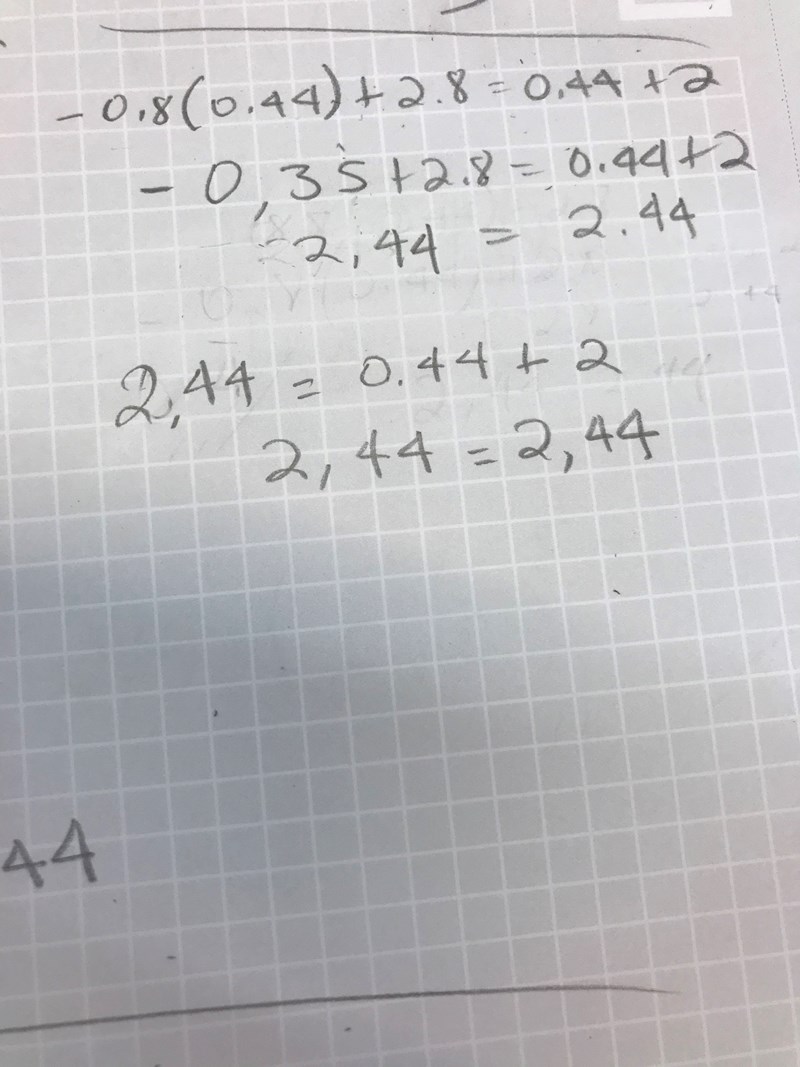 -0.8(0.44)+2.8=0.44+2
-0,35+2.8=0.44+2
2,44=2.44
2,44=0.44+2
2,44=2,44
44